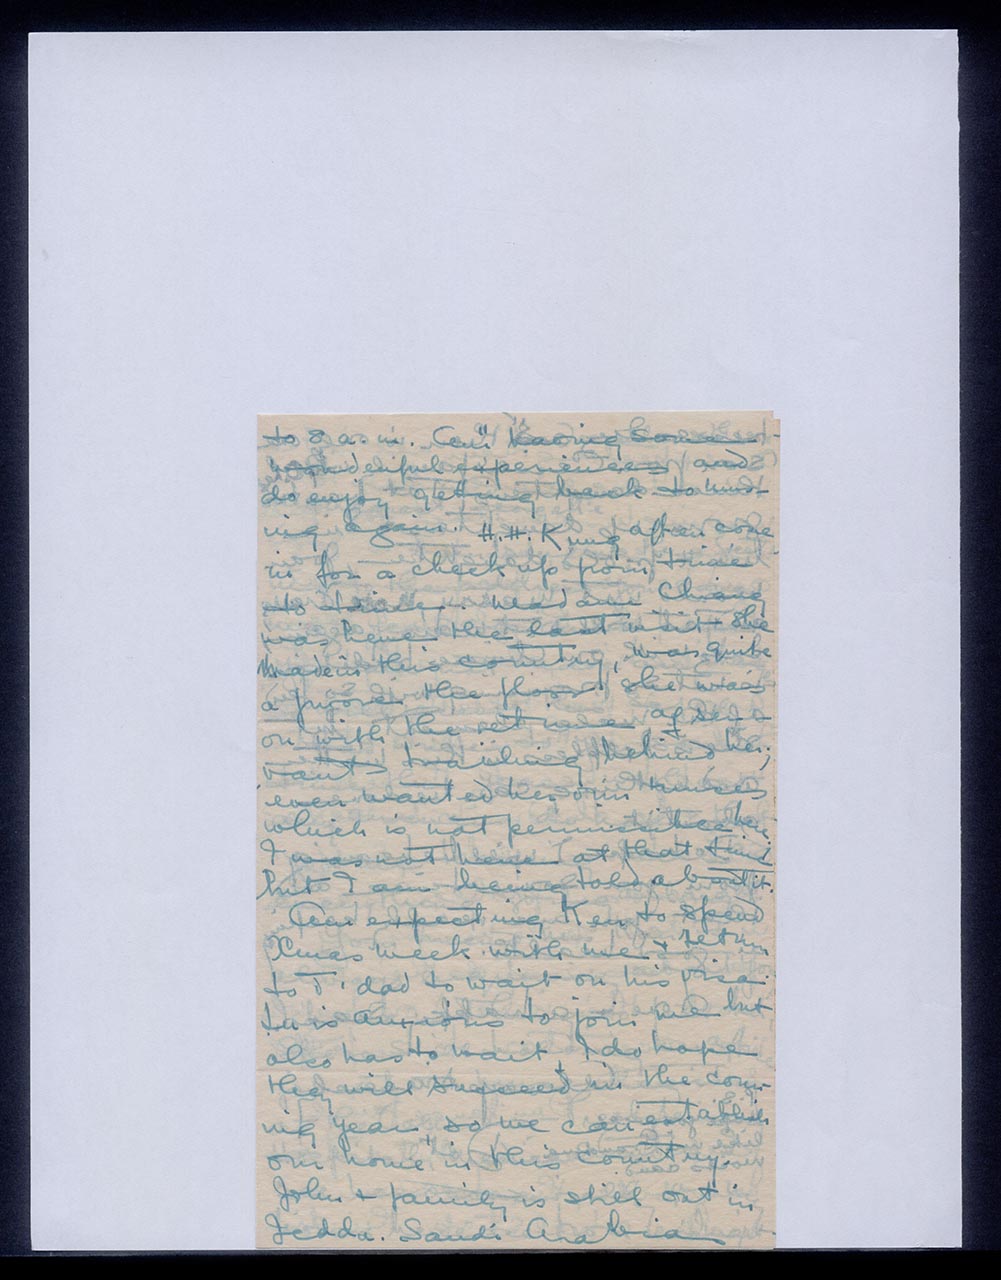 to 8 a.m. Am having some
wonderful experiences and
do enjoy getting back to nurs-
ing again. H.H. Kung often come
in for a check up from time
to time. Madam Chiang
was here the last visit she
made in this country, was quite
a furore on the floor, she was
on with the retinue of ser-
vants trailing behind her,
even wanted her own nurses
which is not permitted here
I was not here at that time
but I am being told about it.
Am expecting Ken to spend
Xmas week with me & return
to T'dad to wait on his visa.
is anxious to join me but
also has to wait, I do hope
they will succeed in the com-
ing year so we can establish
our home in this country.
John & family is still out in
Jedda. Saudi Arabia